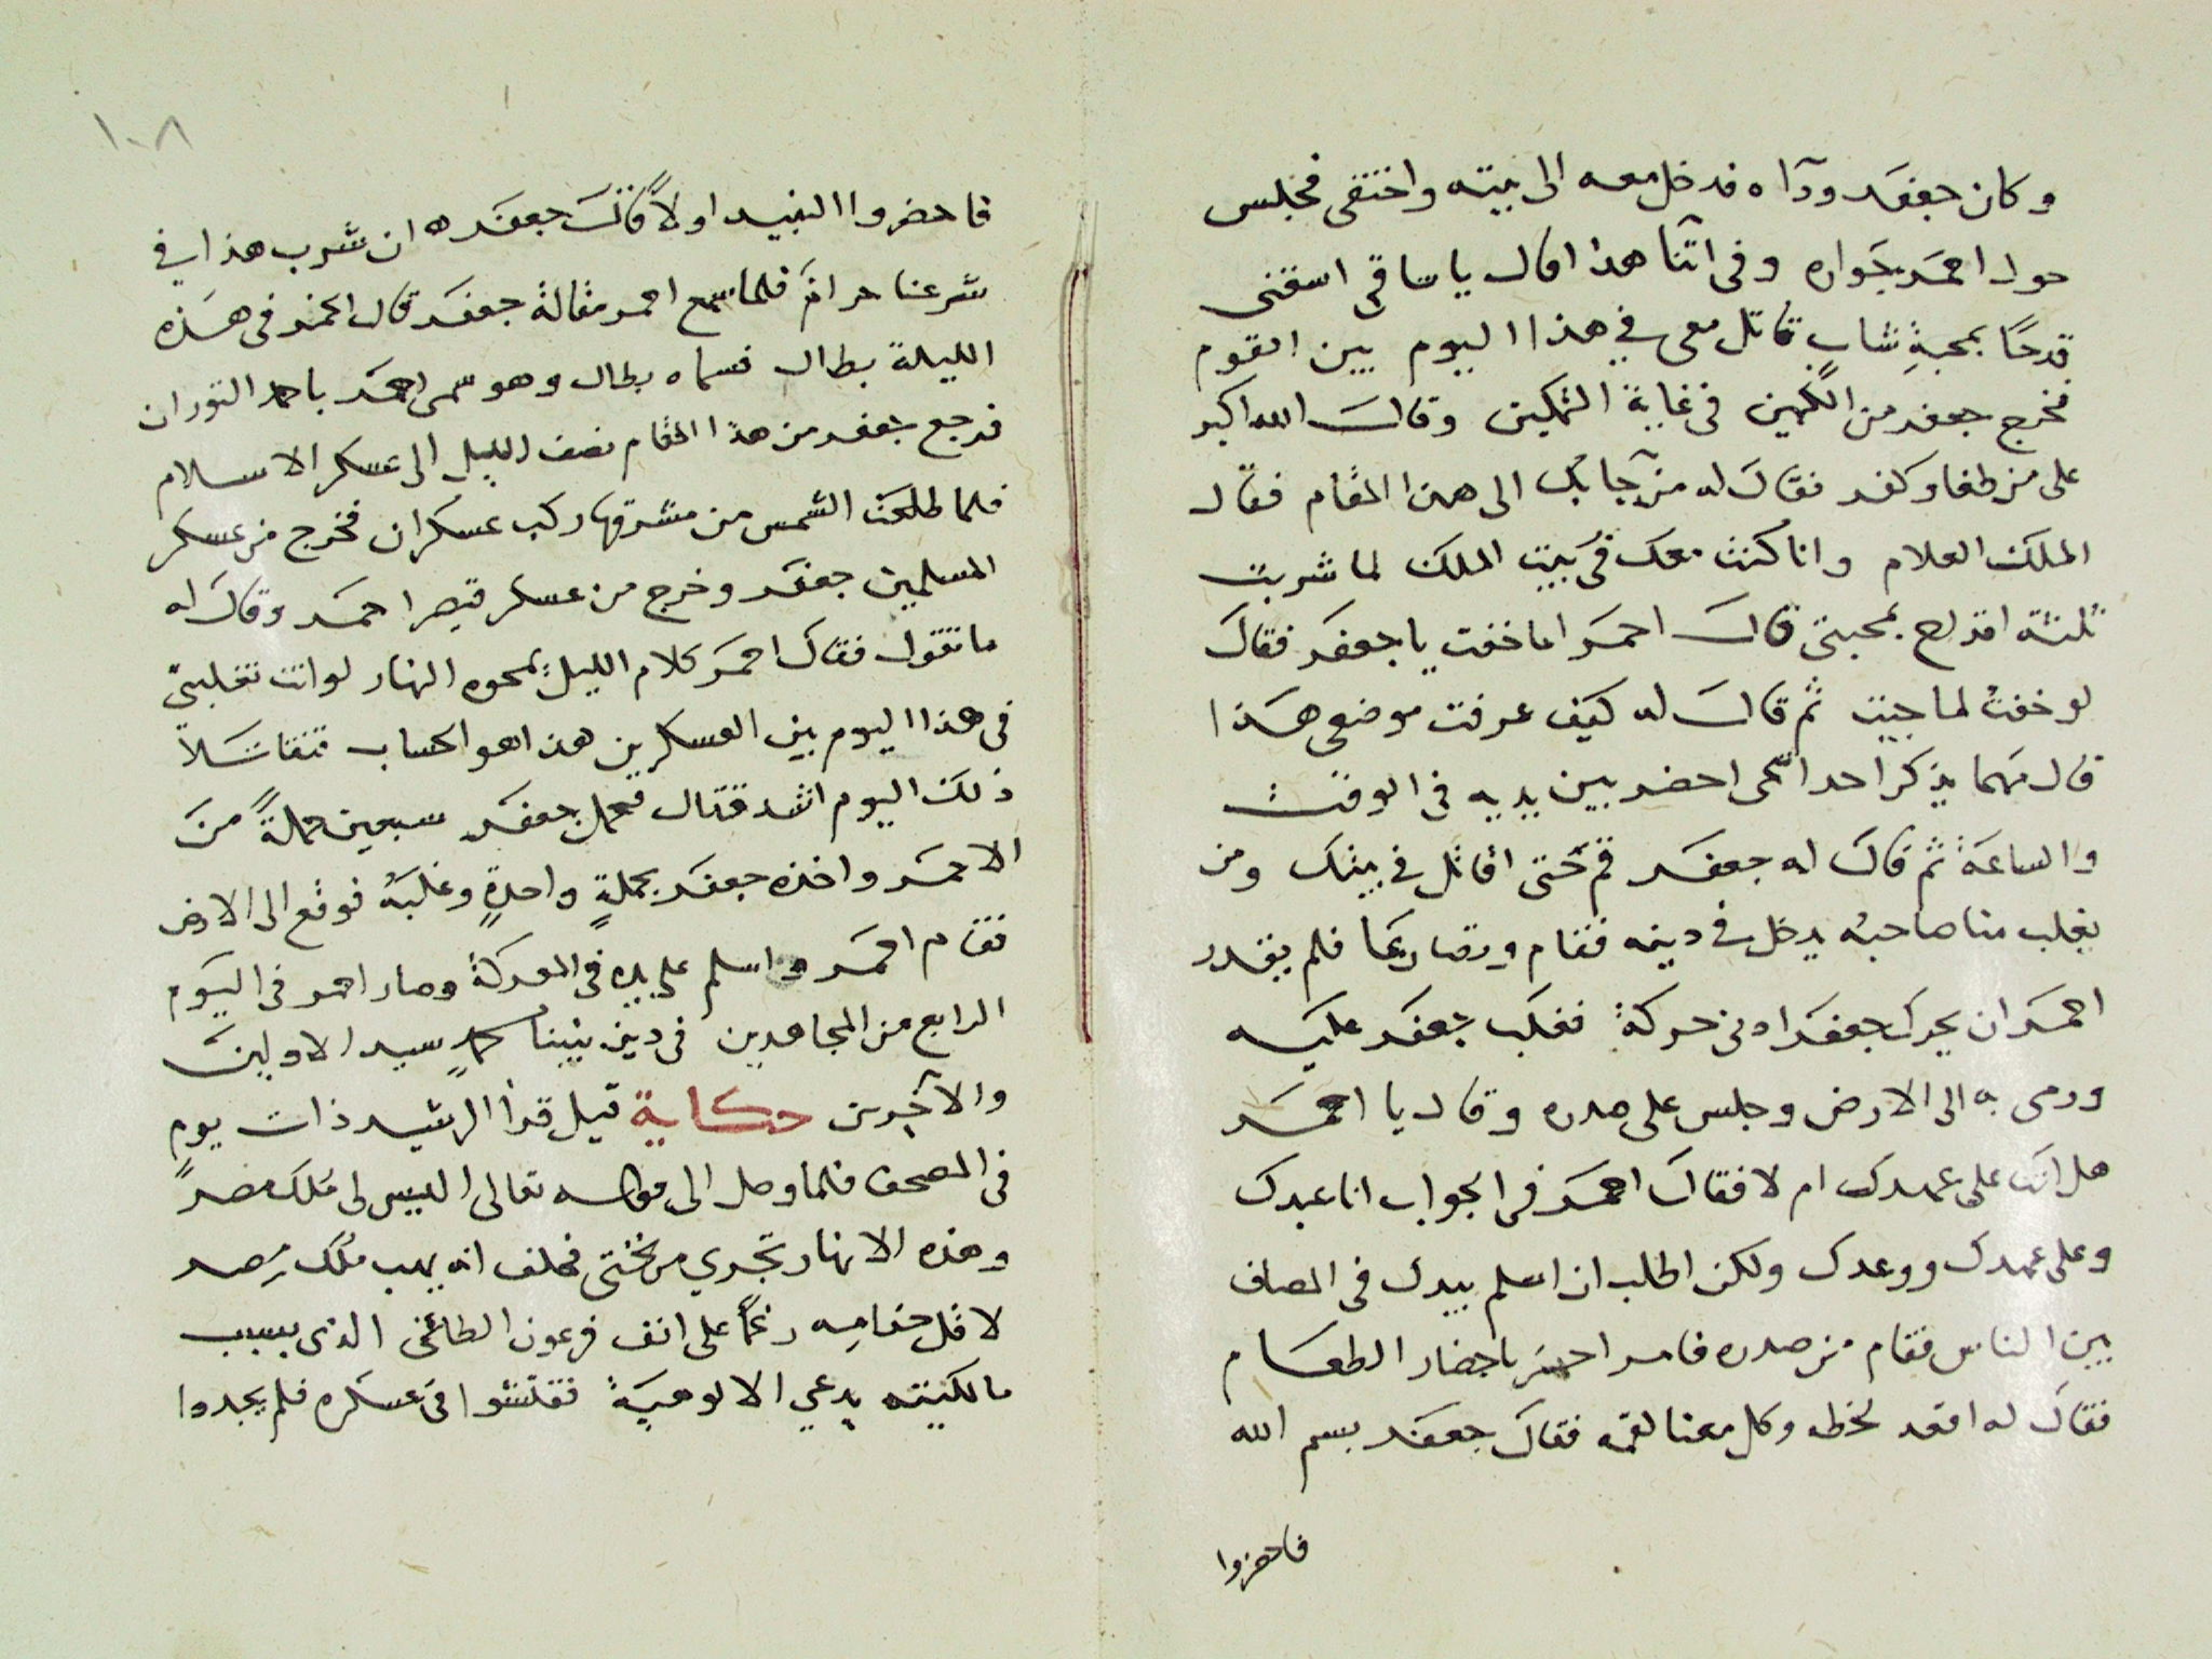 وكان جعفر ورآه فدخل معه الى بيته واختفى فجلس
حول احمر بجواره وفى اثنآ هذا قال يا ساقي اسقني
قدحًا بمحبةِ شاب قاتل معى في هذا اليوم بين القوم
فخرج جعفر من الكمين فى غاية التمكين وقال الله اكبر
على من طغا وكفر فقال له من جآ بك الى هذا المقام فقال
الملك العلام وانا كنت معك فى بيت الملك لما شربت
ثلثة اقداح بمحبتى قال احمر اما خفت يا جعفر فقال
لو خفت لما جيت ثم قال له كيف عرفت موضعى هذا
قال مهما يذكر احد اسمى احضر بين يديه فى الوقت
والساعة ثم قال له جعفر قم حتى اقاتل في بيتك ومن
يغلب منا صاحبه يدخل في دينه فقام وتصارعا فلم يقدر
احمر ان يحرك جعفر ادنى حركة فغلب جعفر عليه
ورمى به الى الارض وجلس على صدره وقال يا احمر
هل انت على عهدك ام لا فقال احمر فى الجواب انا عبدك
وعلى عهدك ووعدك ولكن اطلب ان اسلم بيدك فى المصاف
بين الناس فقام من صدره فامر احمر باحضار الطعام
فقال له اقعد لحظه وكل معنا لقمه فقال جعفر بسم الله
فاحضروا
١٠٨
فاحضروا النبيد اولاً قال جعفر ان شرب هذا في
شرعنا حرام فلما سمع احمر مقالة جعفر قال الخمر فى هذه
الليلة بطال فسماه بطال وهو سمى احمر باحمد التوران
فرجع جعفر من هذا المقام نصف الليل الى عسكر الاسلام
فلما طلعت الشمس من مشرقها ركب عسكران فخرج من عسكر
المسلمين جعفر وخرج من عسكر قيصر احمر وقال له
ما تقول فقال احمر كلام الليل يمحوه النهار لو انت تغلبني
فى هذا اليوم بين العسكرين هذا هو الحساب فتقاتلا
ذلك اليوم اشد قتال فحمل جعفر سبعين حملةً من
الاحمر واخذه جعفر بحملةٍ واحدةٍ وغلبه فوقع الى الارض
فقام احمر واسلم على يده فى المعركة وصار احمر فى اليوم
الرابع من المجاهدين فى دين نبينا محمدٍ سيد الاولين
والآخرين حكاية قيل قرأ الرشيد ذات يوم
فى المصحف فلما وصل الى قوله تعالى اليس لى ملك مصر
وهذه الانهار تجري من تحتى فحلف انه يهب ملك مصر
لاقل خدامه رغمًا على انف فرعون الطاغى الذى بسبب
مالكيته يدعي الالوهية ففتشوا فى عسكره فلم يجدوا